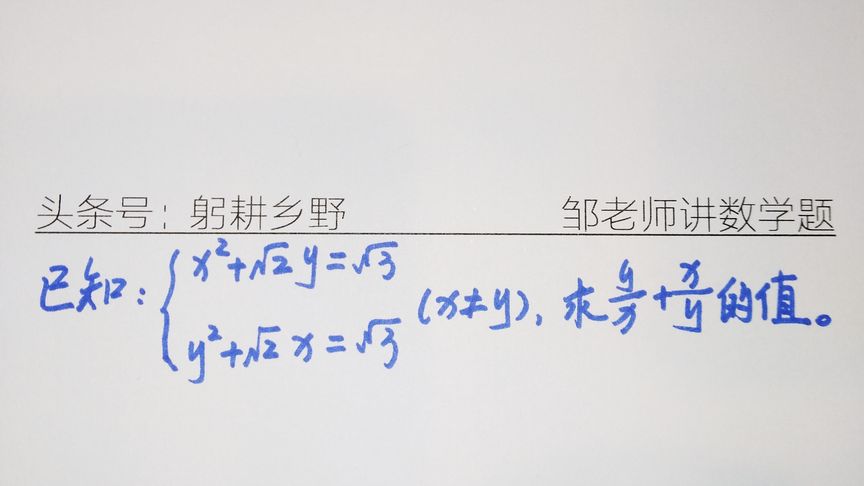 头条号：躬耕乡野 邹老师讲数学题
已知：{x²+√2 y=√3
y²+√2 x=√3 (x≠y)，求 y/x + x/y 的值。